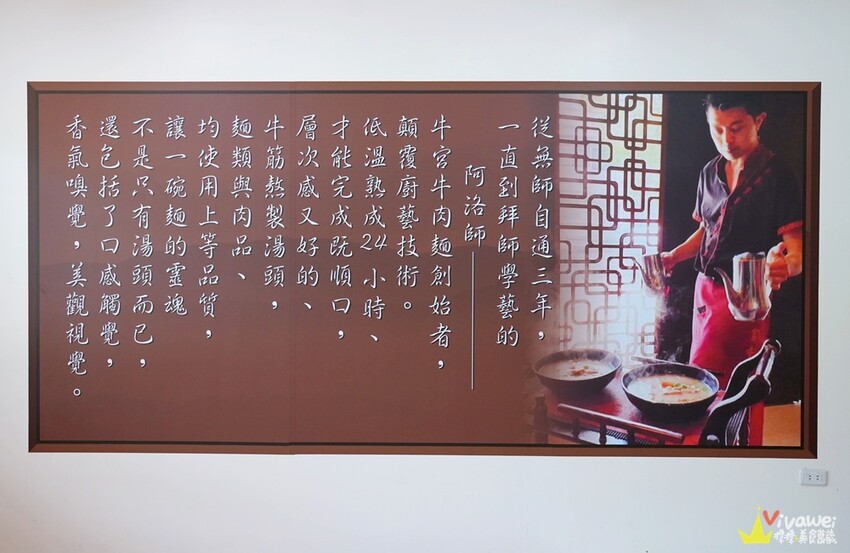 從無師自通三年，
一直到拜師學藝的
阿洛師
牛宮牛肉麵創始者，
顛覆廚藝技術。
低溫熟成24小時、
才能完成既順口，
層次感又好的、
牛筋熬製湯頭，
麵類與肉品、
均使用上等品質，
讓一碗麵的靈魂
不是只有湯頭而已，
還包括了口感觸覺，
香氣嗅覺，美觀視覺。
Vivawei